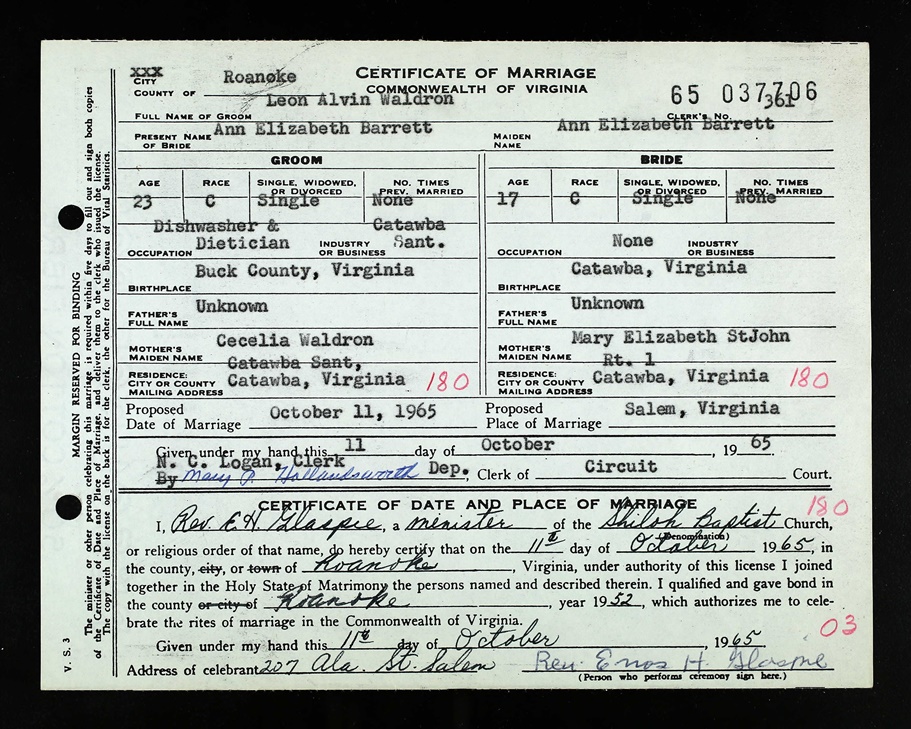 XXX
CITY
COUNTY OF Roanoke
CERTIFICATE OF MARRIAGE
COMMONWEALTH OF VIRGINIA
65 037706
361
CLERK'S NO.
Leon Alvin Waldron
FULL NAME OF GROOM
PRESENT NAME OF BRIDE Ann Elizabeth Barrett
MAIDEN NAME Ann Elizabeth Barrett
GROOM
BRIDE
AGE RACE SINGLE, WIDOWED, OR DIVORCED NO. TIMES PREV. MARRIED
23 C Single None
AGE RACE SINGLE, WIDOWED, OR DIVORCED NO. TIMES PREV. MARRIED
17 C Single None
Dishwasher & Catawba
OCCUPATION Dietician INDUSTRY OR BUSINESS Sant.
OCCUPATION None INDUSTRY OR BUSINESS
BIRTHPLACE Buck County, Virginia
BIRTHPLACE Catawba, Virginia
FATHER'S FULL NAME Unknown
FATHER'S FULL NAME Unknown
MOTHER'S MAIDEN NAME Cecelia Waldron
MOTHER'S MAIDEN NAME Mary Elizabeth StJohn
Catawba Sant,
RESIDENCE: CITY OR COUNTY MAILING ADDRESS Catawba, Virginia 180
Rt. 1
RESIDENCE: CITY OR COUNTY MAILING ADDRESS Catawba, Virginia 180
Proposed Date of Marriage October 11, 1965
Proposed Place of Marriage Salem, Virginia
Given under my hand this 11 day of October, 1965
N. C. Logan, Clerk
By Mary P. Hollandsworth Dep., Clerk of Circuit Court.
CERTIFICATE OF DATE AND PLACE OF MARRIAGE
180
I, Rev. E. H. Glaspie, a minister of the Shiloh Baptist Church,
(Denomination)
or religious order of that name, do hereby certify that on the 11th day of October 1965, in
the county, city, or town of Roanoke, Virginia, under authority of this license I joined
together in the Holy State of Matrimony the persons named and described therein. I qualified and gave bond in
the county or city of Roanoke, year 1952, which authorizes me to cele-
brate the rites of marriage in the Commonwealth of Virginia.
03
Given under my hand this 11th day of October, 1965
Address of celebrant 207 Ala. St. Salem Rev. Enos H. Glaspie
(Person who performs ceremony sign here.)
V. S. 3
MARGIN RESERVED FOR BINDING
The minister or other person celebrating this marriage is required within five days to fill out and sign both copies
of the Certificate of Date and Place of Marriage, and deliver them to the clerk who issued the license.
The copy with license on the back is for the clerk, the other for the Bureau of Vital Statistics.